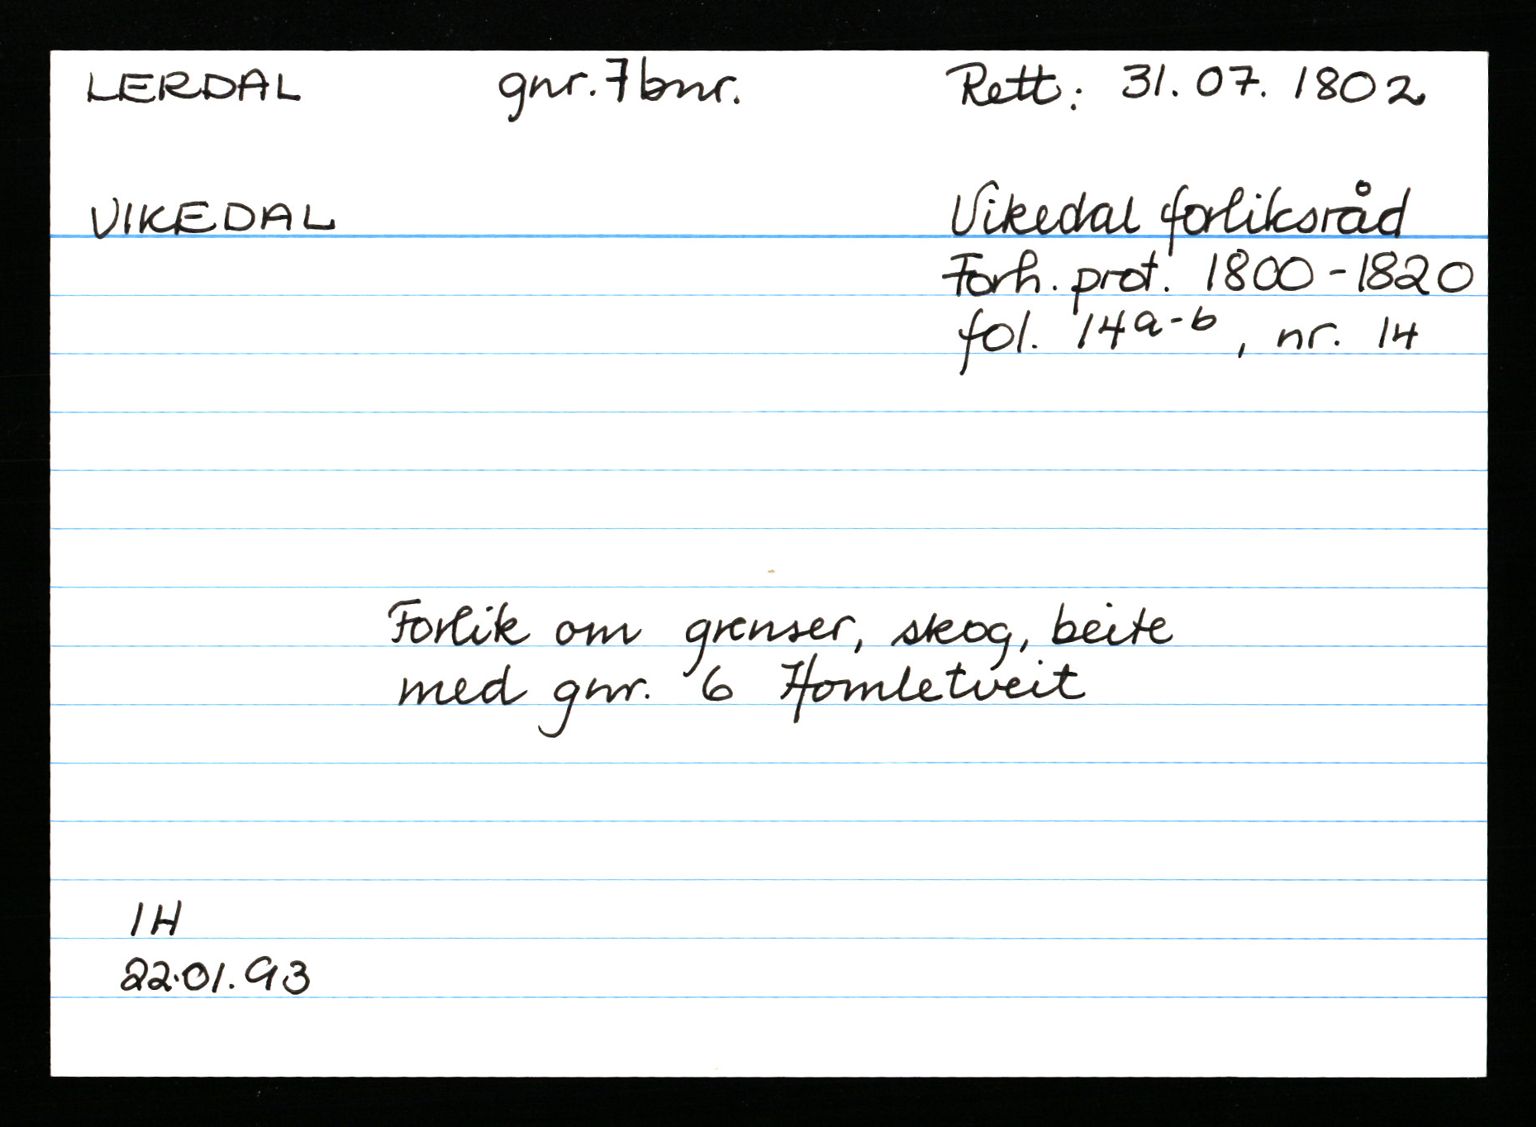 LERDAL gnr. 7 bnr. Rett: 31.07.1802
VIKEDAL Vikedal forliksråd
Forh. prot. 1800-1820
fol. 14a-b, nr. 14
Forlik om grenser, skog, beite
med gnr. 6 Homletveit
IH
22.01.93